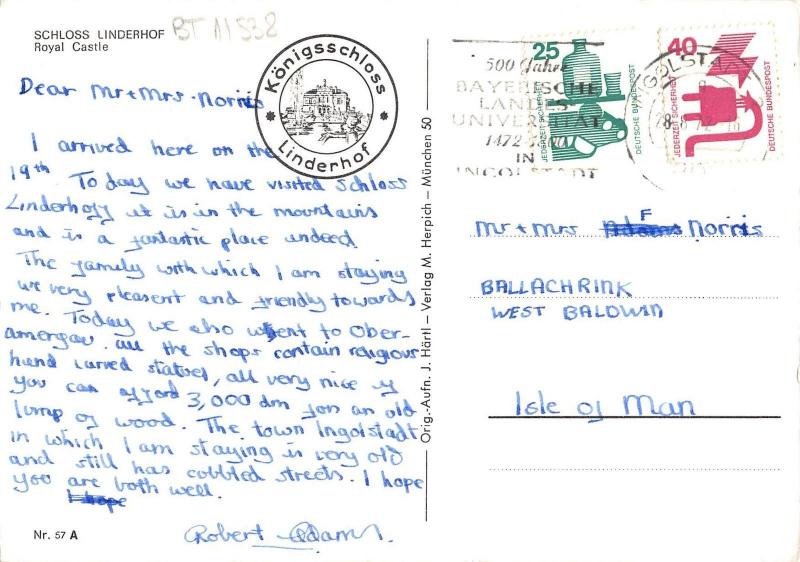 SCHLOSS LINDERHOF
Royal Castle
BT 11538
Königsschloss
Linderhof
Dear Mr + Mrs. Norris
I arrived here on the
19th. Today we have visited Schloss
Linderhof, it is in the mountains
and is a fantastic place indeed
The family with which I am staying
we very pleasent and friendly towards
me. Today we also went to Ober-
amergau. all the shops contain religious
hand carved statues, all very nice if
you can afford 3,000 dm for an old
lump of wood. The town Ingolstadt
in which I am staying is very old
and still has cobbled streets. I hope
you are both well.
I hope
Robert Adams.
Nr. 57 A
Orig.-Aufn. J. Härtl – Verlag M. Herpich – München 50
500 Jahre
BAYERISCHE
LANDES-
UNIVERSITÄT
IN
INGOLSTADT
25
JEDERZEIT SICHERHEIT
DEUTSCHE BUNDESPOST
40
JEDERZEIT SICHERHEIT
DEUTSCHE BUNDESPOST
Mr + Mrs Adams F Norris
BALLACHRINK
WEST BALDWIN
Isle of Man